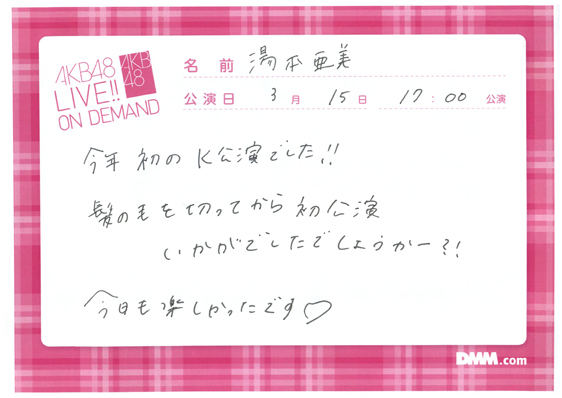 AKB48
LIVE!!
ON DEMAND
AKB
48
名前 湯本亜美
公演日 3月 15日 17:00 公演
今年初のK公演でした!!
髪の毛を切ってから初公演
いかがでしたでしょうかー?!
今日も楽しかったです♡
DMM.com